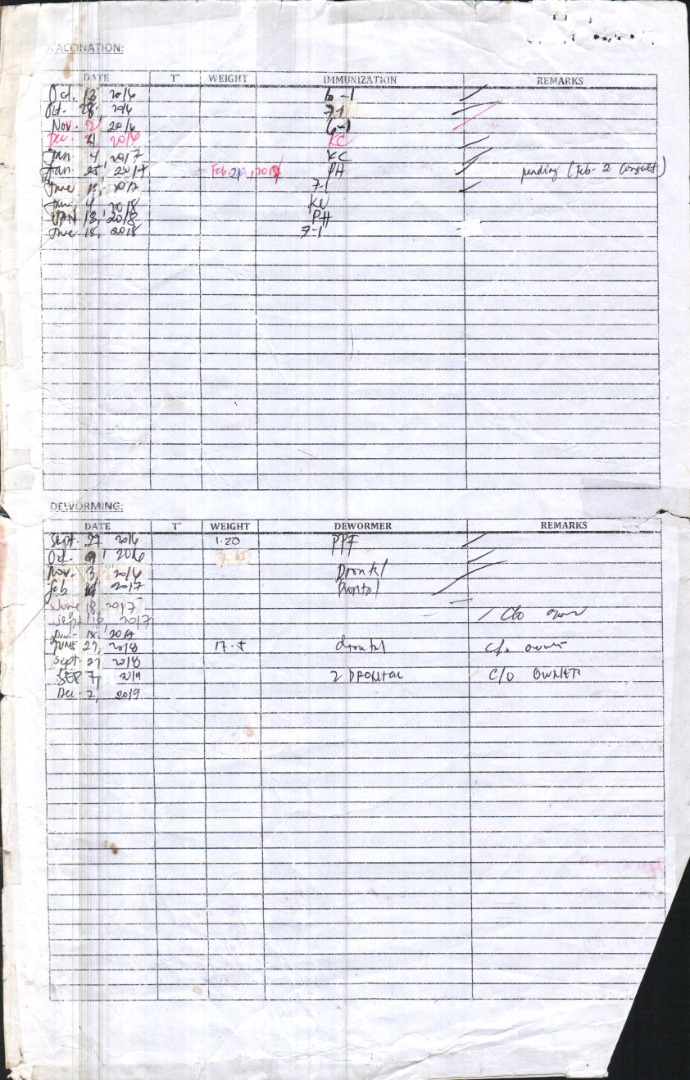 VACCINATION:
DATE T° WEIGHT IMMUNIZATION REMARKS
Oct. 13 2016 6-1
Oct. 28, 2016 7-1
Nov. 2016 6-1
Dec. 4 2016 KC
Jan 4, 2017 KC
Jan 25, 2017 Feb. 21, PH pending (Feb-2 consult)
June 2017 7-1
Jan. 4, 2018 KC
JAN 13, 2018 PH
June 18, 2018 7-1
DEWORMING:
DATE T° WEIGHT DEWORMER REMARKS
Sept. 27 2016 1.20 PPF
Oct. 9, 2016
Nov. 3, 2016 Drontal
Feb 2017 Drontal
June 18, 2017
Sept 2017 c/o owner
Dec. 18, 2017
JUNE 27, 2018 17.5 drontal c/o owner
Sept. 27 2018
SEP 7, 2019 2 DRONTAL C/O OWNER
Dec 2, 2019